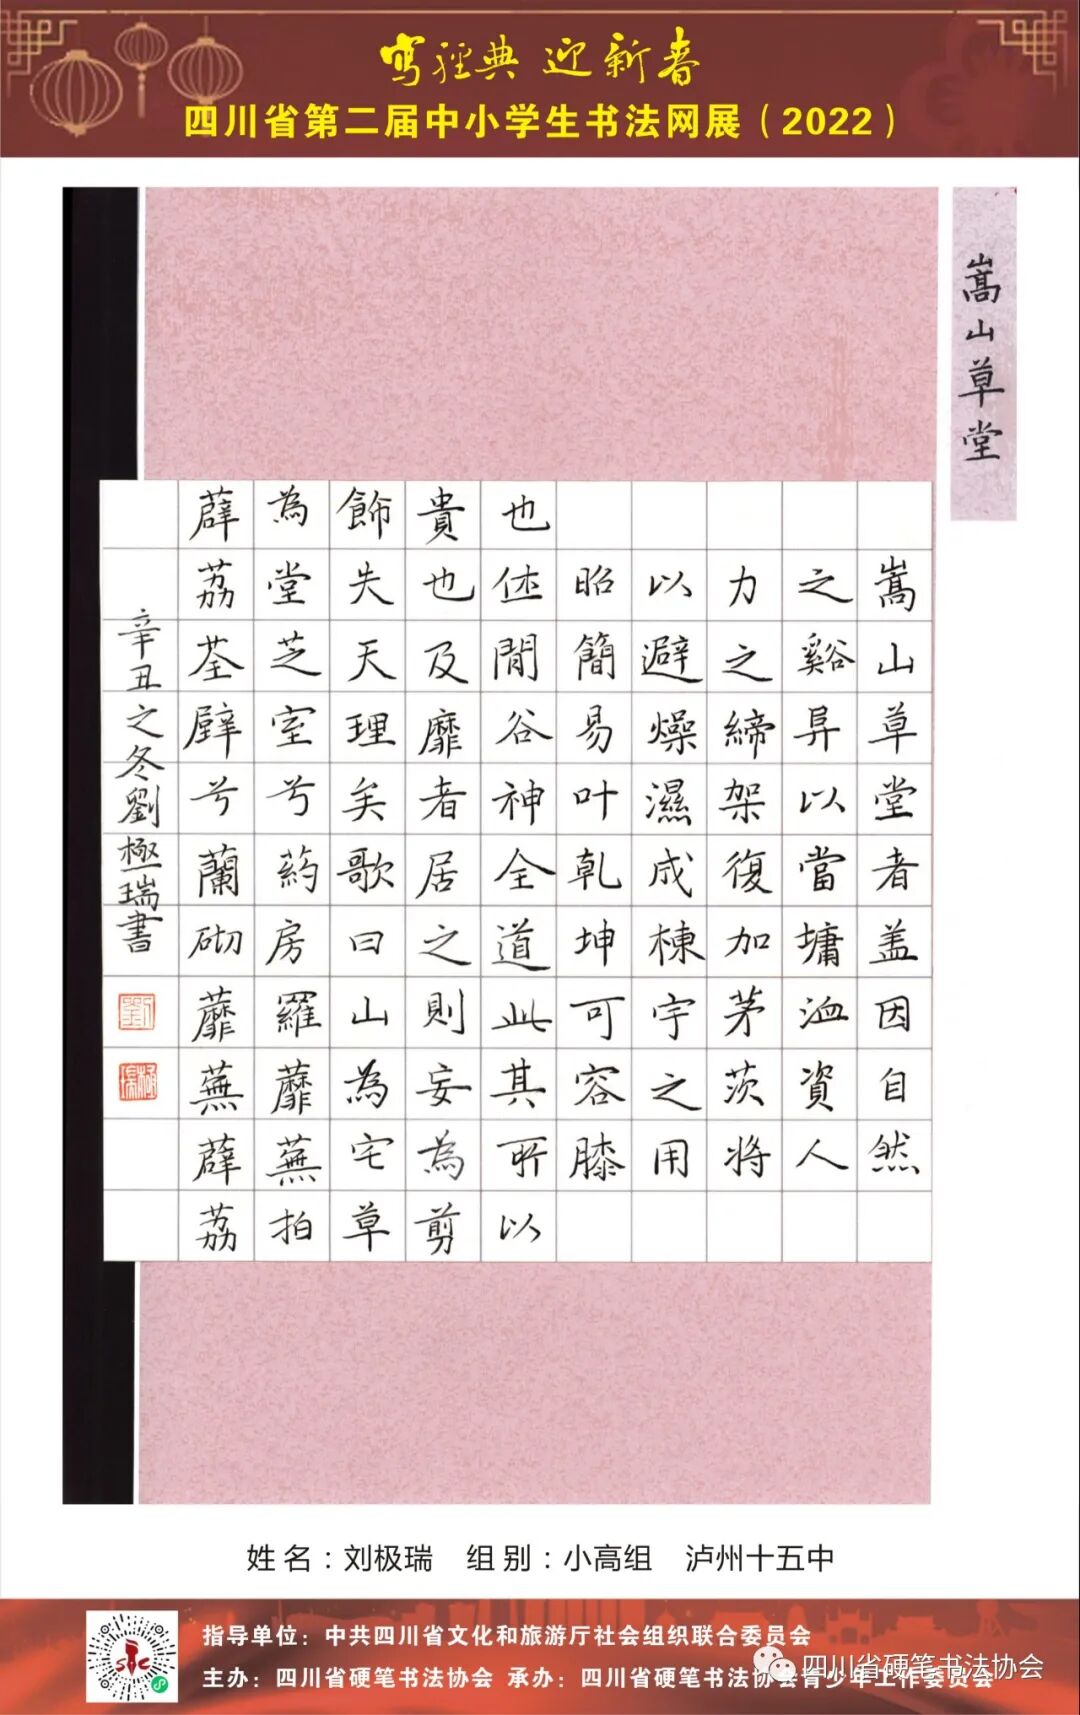 寫經典 迎新春
四川省第二届中小学生书法网展（2022）
嵩山草堂
嵩山草堂者盖因自然
之谿阜以當墉洫資人
力之締架復加茅茨將
以避燥濕成棟宇之用
昭簡易叶乾坤可容膝
也休閒谷神全道此其所以
貴也及靡者居之則妄為剪
飾失天理矣歌曰山為宅草
為堂芝室兮葯房羅蘼蕪拍
薜荔荃壁兮蘭砌蘼蕪薜荔
辛丑之冬劉極瑞書
劉
極瑞
姓名：刘极瑞 组别：小高组 泸州十五中
指导单位：中共四川省文化和旅游厅社会组织联合委员会
主办：四川省硬笔书法协会 承办：四川省硬笔书法协会青少年工作委员会
四川省硬笔书法协会